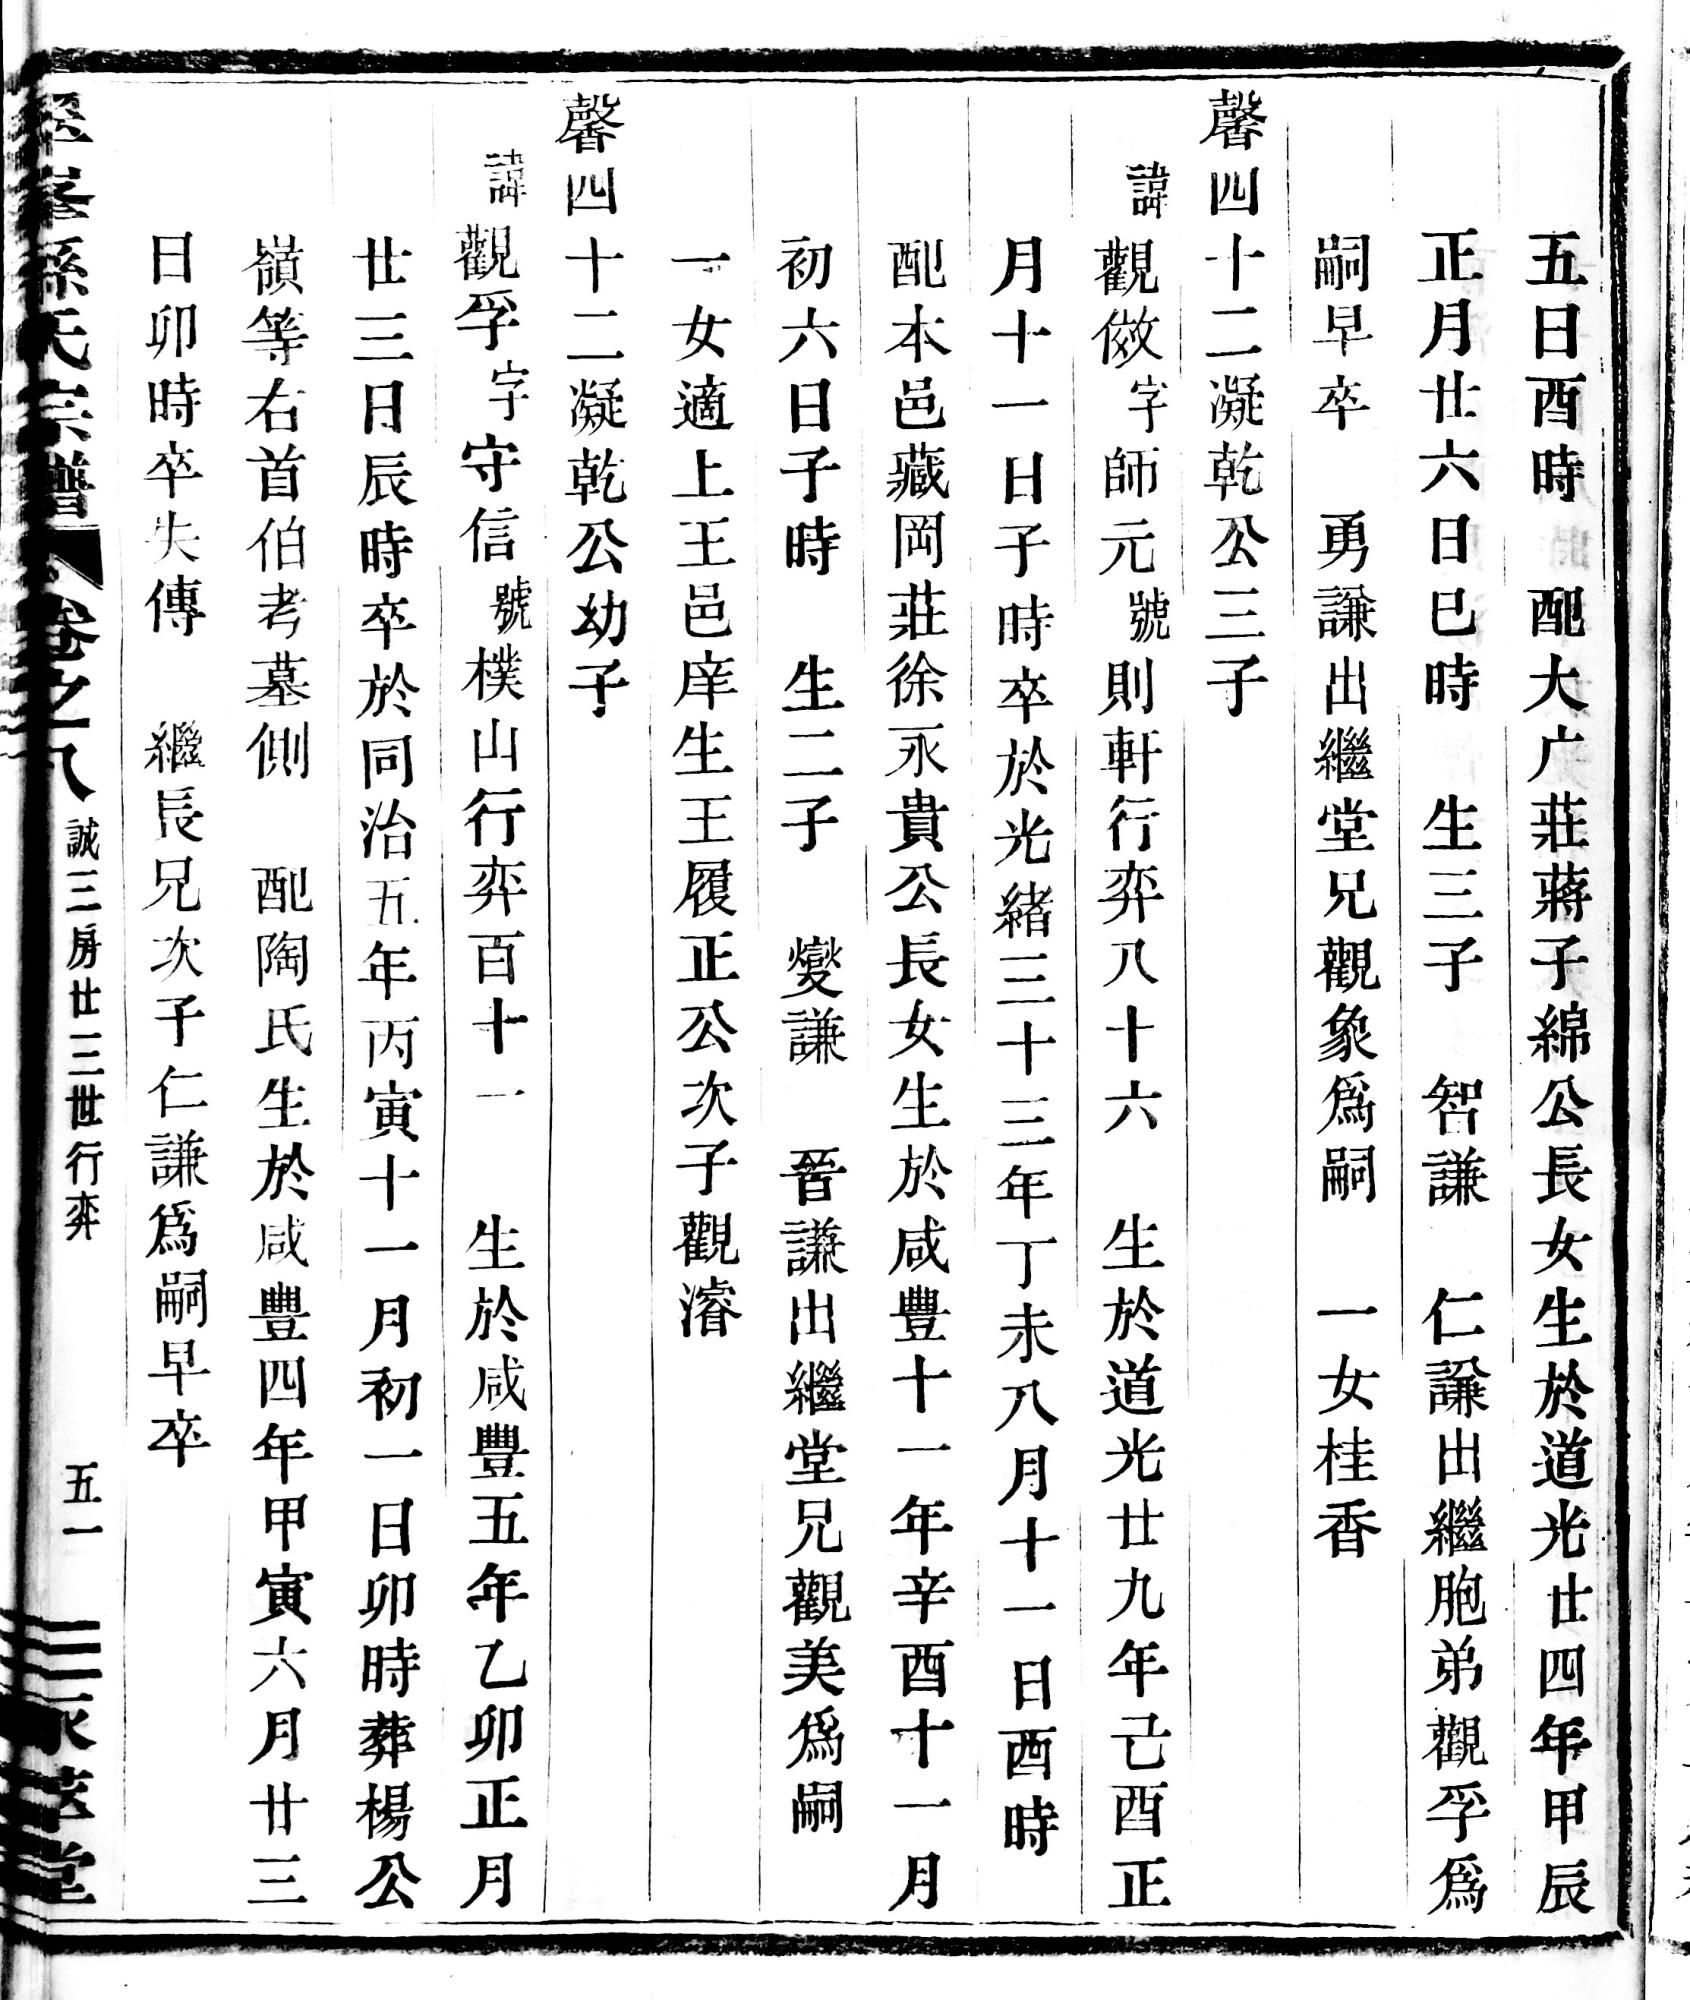 五日酉時　配大广莊蔣子綿公長女生於道光廿四年甲辰
正月廿六日巳時　生三子　智謙　仁謙出繼胞弟觀孚爲
嗣早卒　勇謙出繼堂兄觀象爲嗣　一女桂香
馨四十二凝乾公三子
諱觀傚字師元號則軒行弈八十六　生於道光廿九年己酉正
月十一日子時卒於光緒三十三年丁未八月十一日酉時
配本邑藏岡莊徐永貴公長女生於咸豐十一年辛酉十一月
初六日子時　生二子　燮謙　晉謙出繼堂兄觀美爲嗣
一女適上王邑庠生王履正公次子觀濬
馨四十二凝乾公幼子
諱觀孚字守信號樸山行弈百十一　生於咸豐五年乙卯正月
廿三日辰時卒於同治五年丙寅十一月初一日卯時葬楊公
嶺等右首伯考墓側　配陶氏生於咸豐四年甲寅六月廿三
日卯時卒失傳　繼長兄次子仁謙爲嗣早卒
孫氏宗譜　卷之八　誠三房廿三世行弈　五一　堂